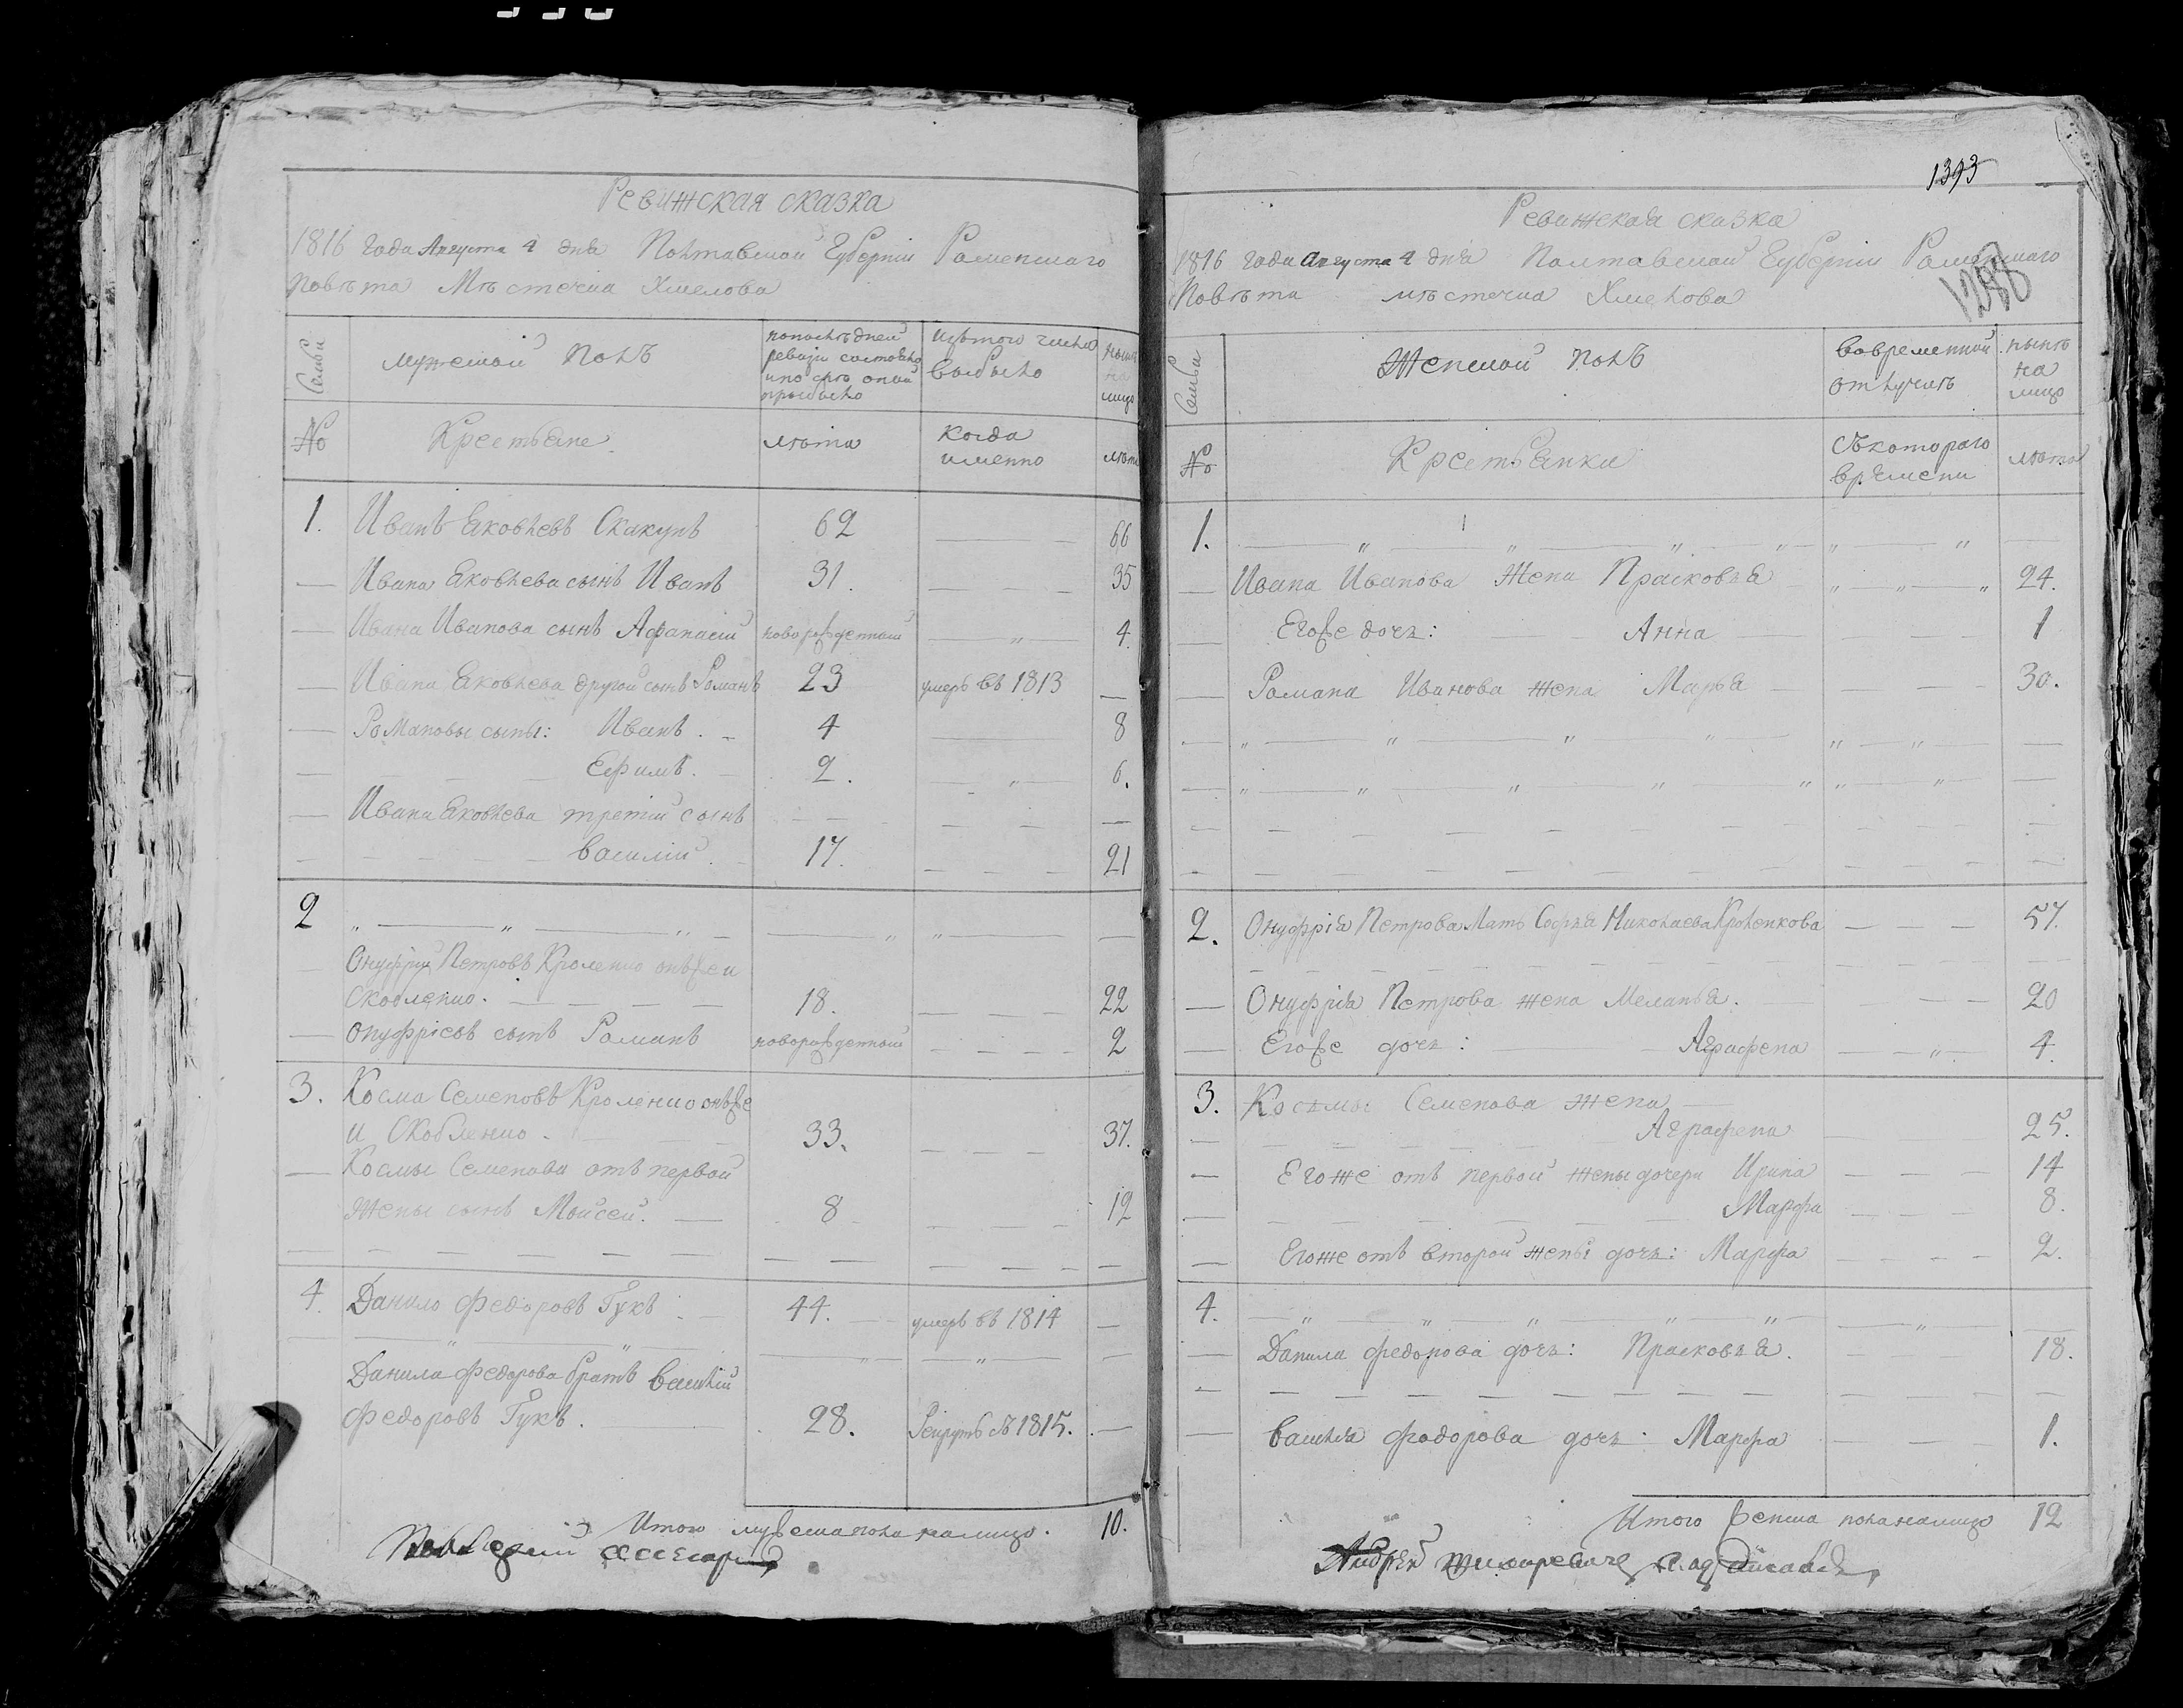 Ревижская сказка
1816 года Августа 4 дня Полтавской Губерніи Роменскаго
Повѣта Мѣстечка Хмелова
Семьи
мужеской полъ
попослѣдней
ревизіи состояло
и по слѣ оной
прибыло
Изътого числа
выбыло
ныне
на
лицо
№
Крестьяне
лѣта
когда
именно
лѣта
1. Иванъ Яковлевъ Скакунъ 62 66
Ивана Яковлева сынъ Иванъ 31. 35
Ивана Иванова сынъ Афанасий новорожденный 4.
Ивана Яковлева другой сынъ Романъ 23 умеръ въ 1813
Романовы сыны: Иванъ. 4 8
Ефимъ. 2. 6.
Ивана Яковлева третій сынъ
василій. 17. 21
2
Онуфрий Петровъ Кроленко онъже и
Скобленко. 18. 22
Онуфріевъ сынъ Романъ новорожденный 2
3. Косма Семеновъ Кроленко онъже
и Скобленко. 33. 37.
Космы Семенова отъ первой
жены сынъ Моисей. 8 12
4. Данило Федоровъ Гукъ 44. умеръ въ 1814
Данила Федорова братъ василій
Федоровъ Гукъ. 28. Рекрутъ съ 1815.
Итого мужеска пола налицо. 10.
1393
Ревижская сказка
1816 года Августа 4 дня Полтавской Губерніи Роменскаго
Повѣта мѣстечка Хмелова
1288
Семьи
Женской полъ
вовременной
отлучкѣ
нынѣ
на
лицо
№
Крестьянки
Съкотораго
времени
лѣта
1.
Ивана Иванова жена Прасковья 24.
Егоже дочь: Анна 1
Романа Иванова жена Марья 30.
2. Онуфрія Петрова Мать Софья Николаева Кроленкова 57.
Онуфрія Петрова жена Меланья. 20
Егоже дочь: Аграфена 4.
3. Косьмы Семенова жена
Аграфена 25.
Егоже отъ первой жены дочери Ирина 14
Марфа 8.
Егоже отъ второй жены дочь: Марфа 2.
4.
Данила федорова дочь: Прасковья. 18.
василія федорова дочь: Марфа 1.
Итого женска пола налицо 12
Андрей